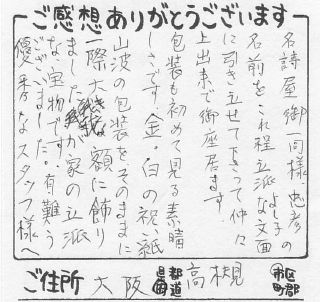 ご感想ありがとうございます
名詩屋御一同様 忠彦 よし子の
名前をこれ程立派な文面
に引き立せて下さって仲々
上出来で御座居ます。
包装も初めて見る素晴
しさです。金。白の祝い紙
山波の包装をそのままに
一際大きな額に飾り
ました。我が家の立派
な宝物です。有難う
ございました。
優秀なスタッフ様へ
ご住所 大阪 都道府県 高槻 市区町郡